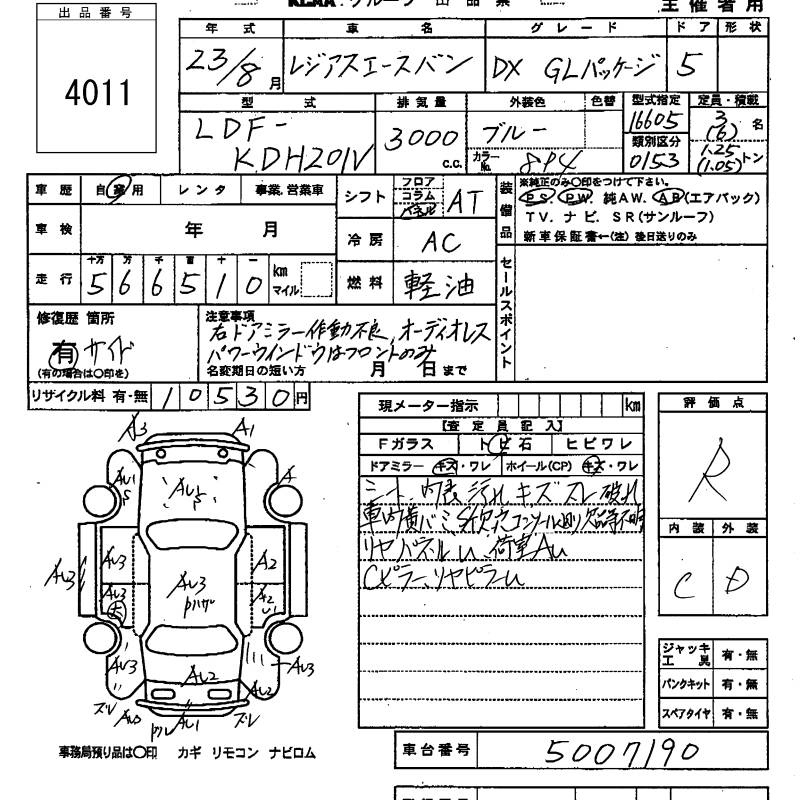 出品番号
4011
年式 車名 グレード ドア 形状
23/8月 レジアスエースバン DX GLパッケージ 5
型式 排気量 外装色 色替 型式指定 定員・積載
LDF-KDH201V 3000 c.c. ブルー 16605 3(6)名
カラーNo. 8P4 類別区分 0153 1.25(1.05)トン
車歴 自家用 レンタ 事業.営業車 シフト フロア コラム パネル AT
装備品 ※純正のみ〇印をつけて下さい。
P S. P W. 純A W. A B(エアバック)
T V. ナ ビ. S R(サンルーフ)
新車保証書←(注) 後日送りのみ
車検 年 月 冷房 AC
走行 十万 万 千 百 十 一
566510 km マイル 燃料 軽油
セールスポイント
修復歴 箇所
有 サイド
(有の場合は〇印を)
注意事項
右ドアミラー作動不良、オーディオレス
パワーウインドウはフロントのみ
名変期日の短い方 月 日まで
リサイクル料 有・無 10530円
現メーター指示 km
【査定員記入】
Fガラス トビ石 ヒビワレ
ドアミラー キズ・ワレ ホイール(CP) キズ・ワレ
シート、内張 汚れ キズ スレ 破れ
リヤパネルU、荷室AU
Cピラー、リヤピラーU
評価点
R
内装 外装
C D
ジャッキ工具 有・無
パンクキット 有・無
スペアタイヤ 有・無
A3 A1
AU1 S AUS A
AU3 AU3 AU3 A2
AU3
AU3 AU2 AU3
AU2
ズレ AU1 ズレ
事務局預り品は〇印 カギ リモコン ナビロム
車台番号 5007190